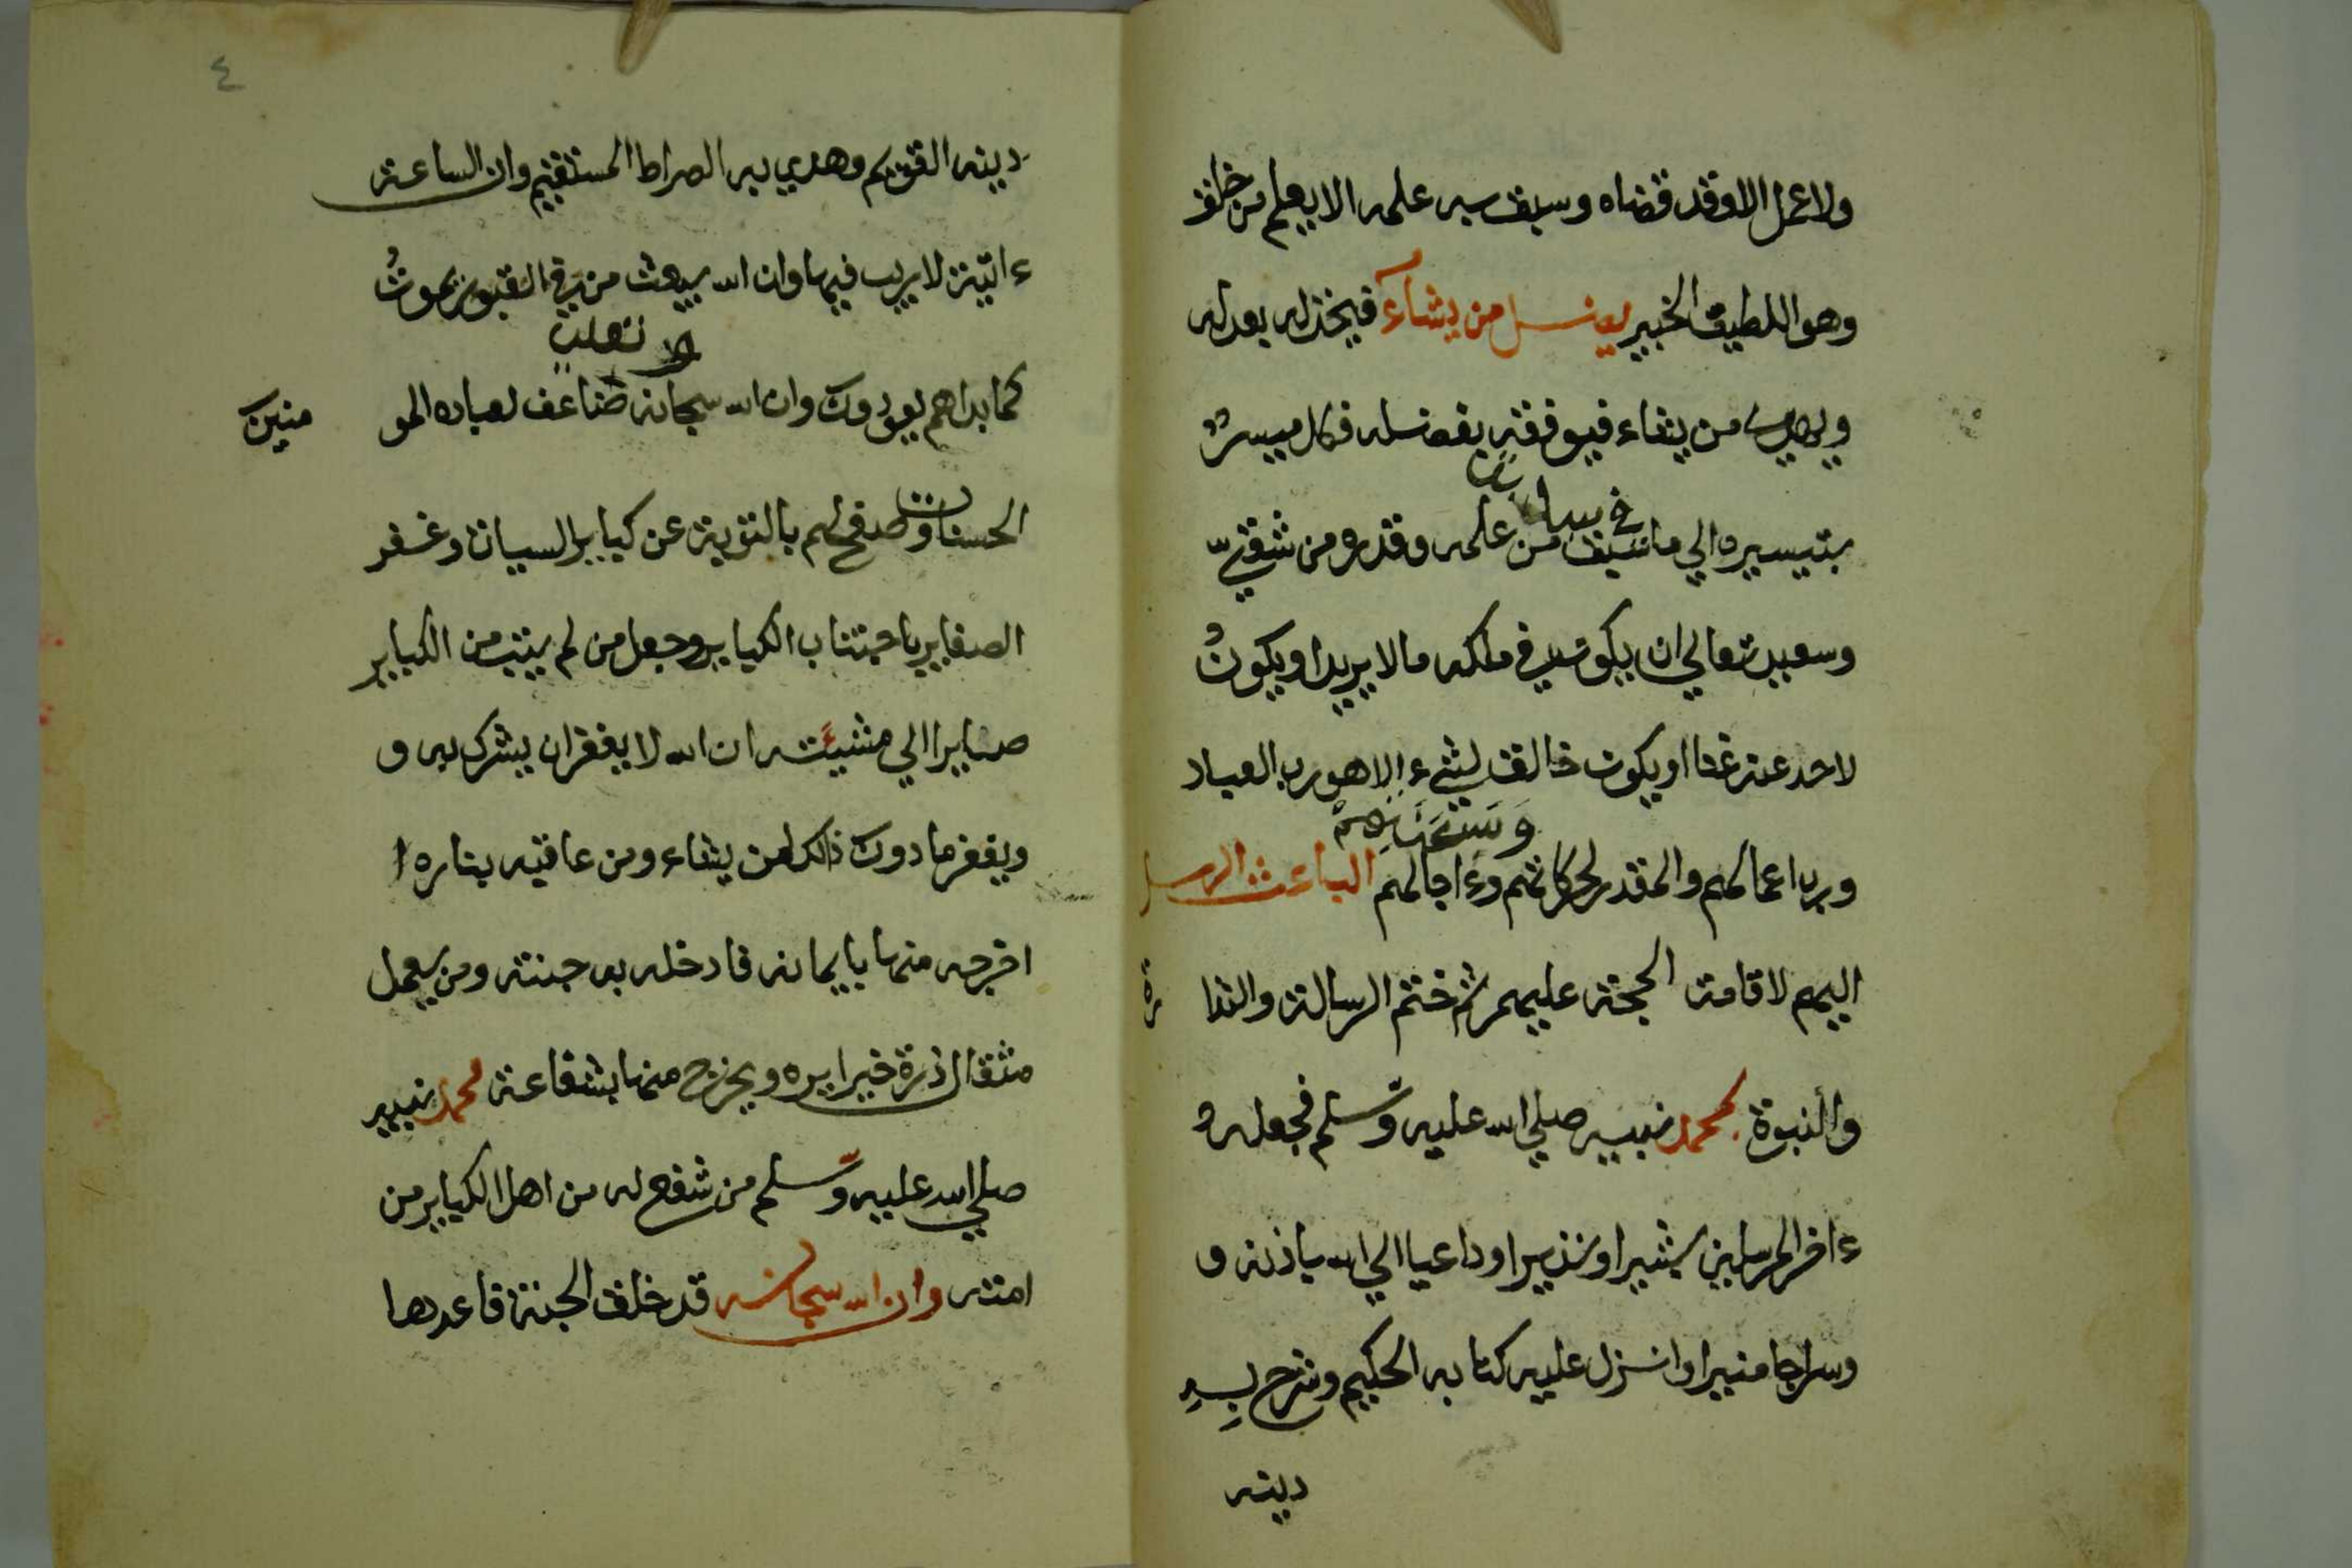 ولا عمل الا وقد قضاه وسبق به علمه الا يعلم من خلق
وهو اللطيف الخبير يضل من يشاء فيخذله بعدله
ويهدي من يشاء فيوفقه بفضله فكل ميسر
في سابق
بتيسيره الي ما سبق من علمه وقدره من شقي
وسعيد تعالي ان يكون في ملكه ما لا يريد او يكون
لاحد عنه غنا او يكون خالق لشيء الا هو رب العباد
ورب اعمالهم والمقدر لحركاتهم وءاجالهم الباعث الرسل
اليهم لاقامة الحجة عليهم ثم ختم الرسالة والنذارة
والنبوة بمحمد نبيه صلي الله عليه وسلم فجعله
ءاخر المرسلين بشيرا ونذيرا وداعيا الي الله باذنه و
وسراجا منيرا وانزل عليه كتابه الحكيم وشرح به
دينه
٤
دينه القويم وهدي به الصراط المستقيم وان الساعة
ءاتية لا ريب فيها وان الله يبعث من في القبور يموت
كما بداهم يعودون وان الله سبحانه ضاعف لعباده المومنين
الحسنات وصفح لهم بالتوبة عن كباير السيات وغفر
الصغاير باجتناب الكباير وجعل من لم يتب من الكباير
صايرا الي مشيئته ان الله لا يغفر ان يشرك به و
ويغفر ما دون ذلك لمن يشاء ومن عاقبه بناره ا
اخرجه منها بايمانه فادخله به جنته ومن يعمل
مثقال ذرة خيرا يره ويخرج منها بشفاعة محمد نبيه
صلي الله عليه وسلم من شفع له من اهل الكباير من
امته وان الله سبحانه قد خلق الجنة فاعدها